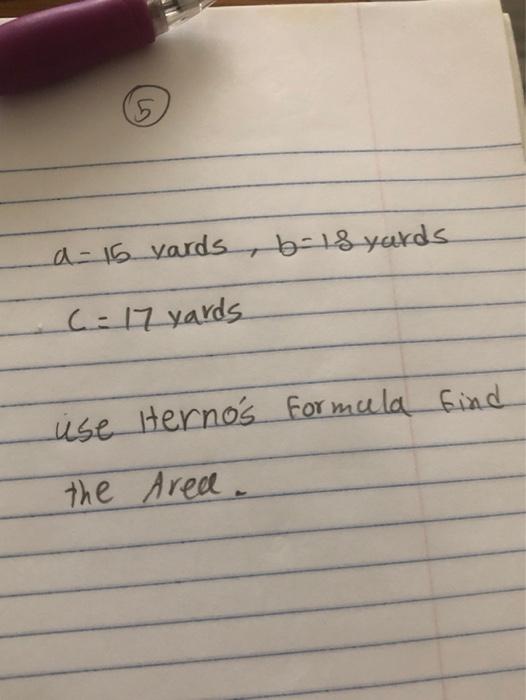 5
a = 15 yards , b = 18 yards
C = 17 yards
use Herno's Formula Find
the Area.